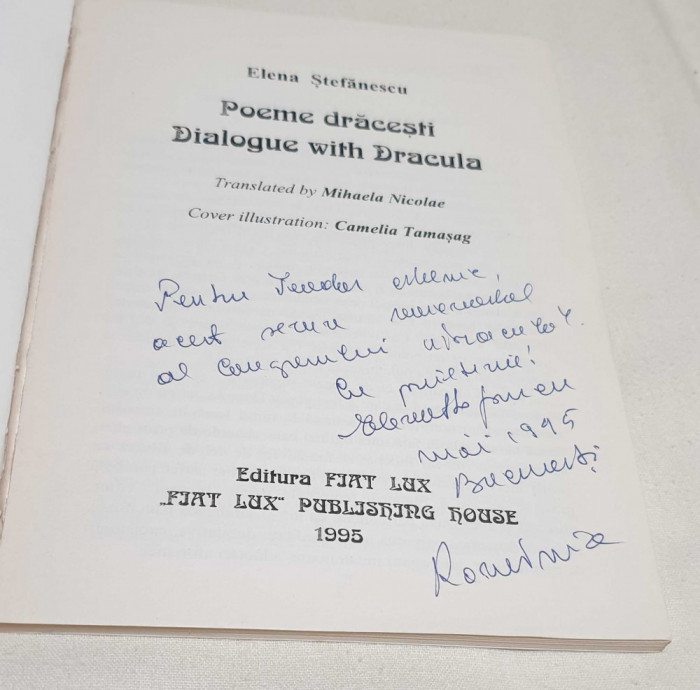 Elena Ștefănescu
Poeme drăcești
Dialogue with Dracula
Translated by Mihaela Nicolae
Cover illustration: Camelia Tamașag
Pentru
acest semn
al Congresului
Cu prietenie!
mai 1995
București
Editura FIAT LUX
„FIAT LUX" PUBLISHING HOUSE
1995
România